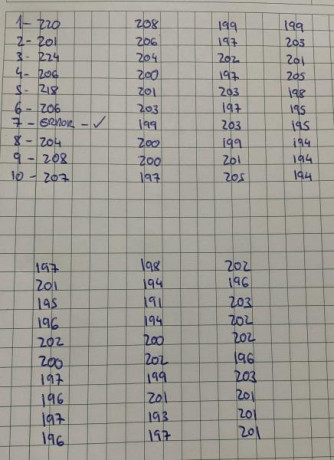 1 - 220 208 199 199
2 - 201 206 197 203
3 - 224 204 202 201
4 - 206 200 197 205
5 - 218 201 203 198
6 - 206 203 197 195
7 - ERROR - ✓ 199 203 195
8 - 204 200 199 194
9 - 208 200 201 194
10 - 207 197 205 194
197 198 202
201 194 196
195 191 203
196 194 202
202 200 202
200 202 196
197 199 203
196 201 201
197 193 201
196 197 201